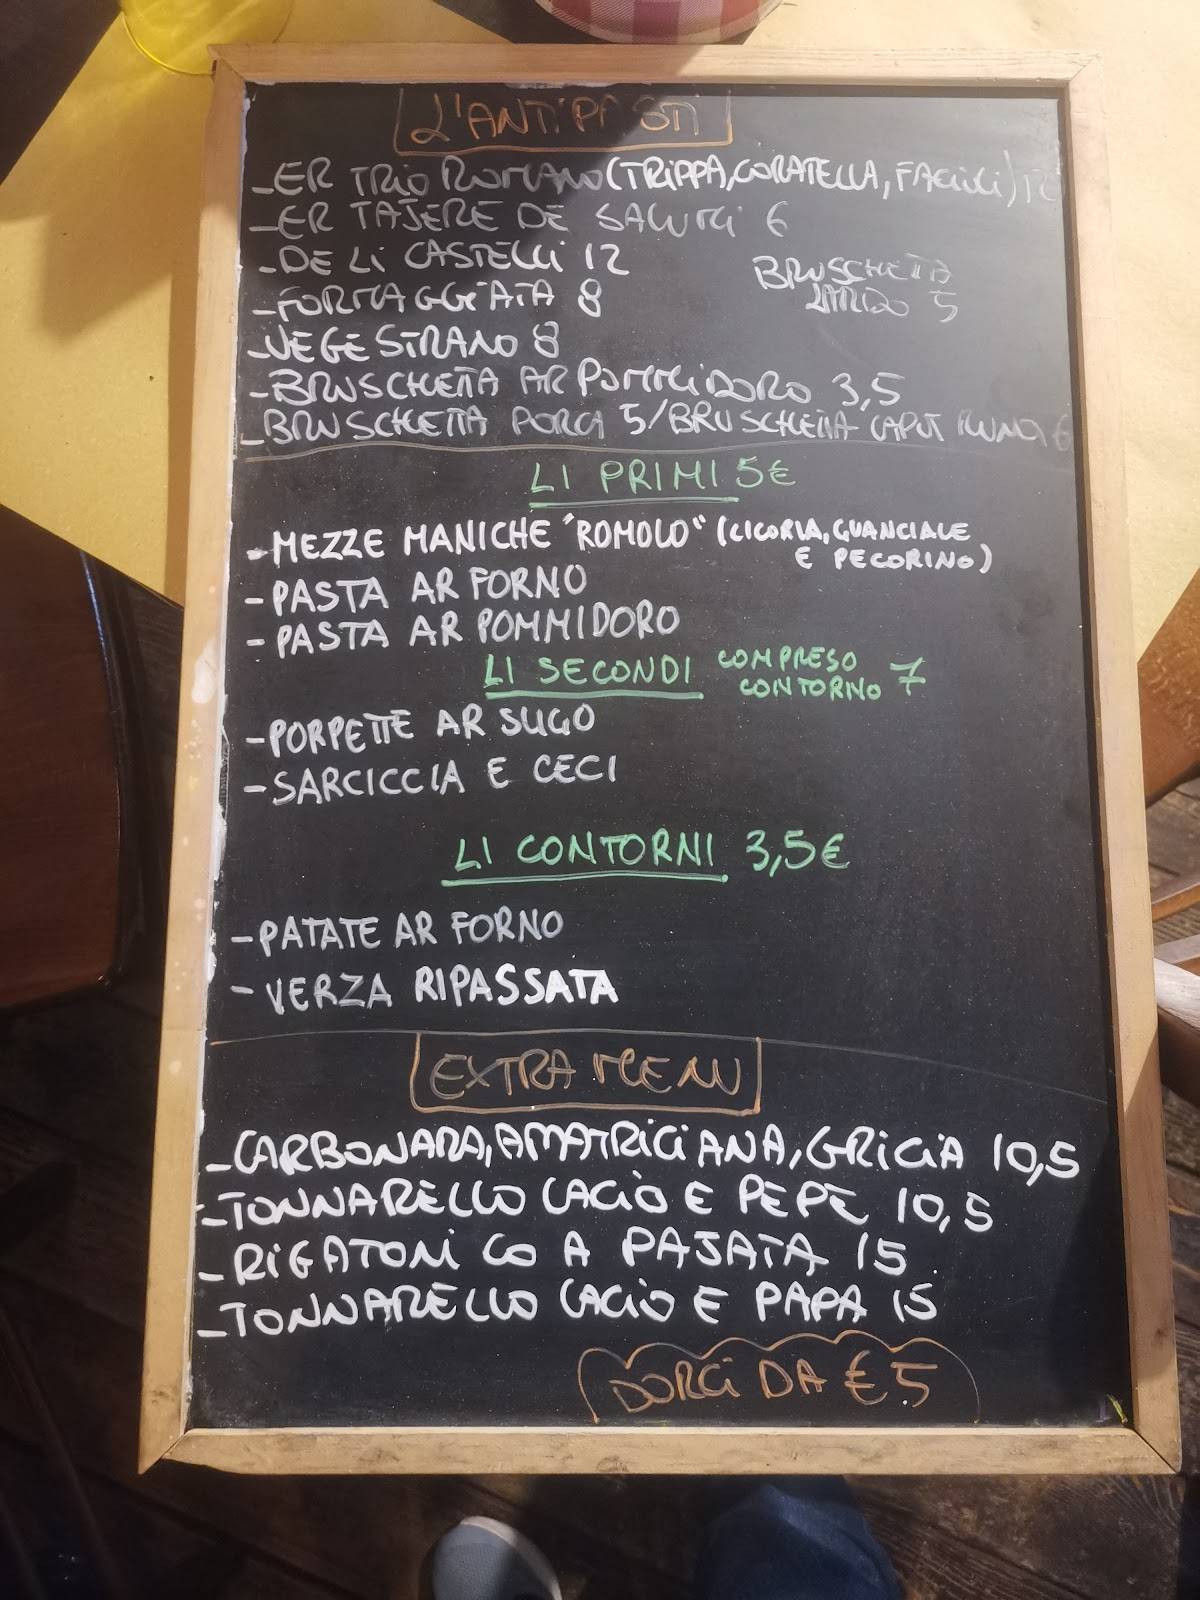 L'ANTIPASTI
-ER TRIO ROMANO (TRIPPA, CORATELLA, FACIOLI) 12
-ER TAJERE DE SALUMI 6
-DE LI CASTELLI 12
-FORMAGGIATA 8
BRUSCHETTA
LARDO 5
-VEGESTRANO 8
-BRUSCHETTA AR POMMIDORO 3,5
-BRUSCHETTA PORCA 5/BRUSCHETTA CAPUT 6
LI PRIMI 5€
-MEZZE MANICHE "ROMOLO" (CICORIA, GUANCIALE
E PECORINO)
-PASTA AR FORNO
-PASTA AR POMMIDORO
LI SECONDI COMPRESO
CONTORNO 7
-PORPETTE AR SUGO
-SARCICCIA E CECI
LI CONTORNI 3,5€
-PATATE AR FORNO
-VERZA RIPASSATA
EXTRA MENU
-CARBONARA, AMATRICIANA, GRICIA 10,5
-TONNARELLO CACIO E PEPE 10,5
-RIGATONI CO A PAJATA 15
-TONNARELLO CACIO E PAPA 15
DORCI DA € 5